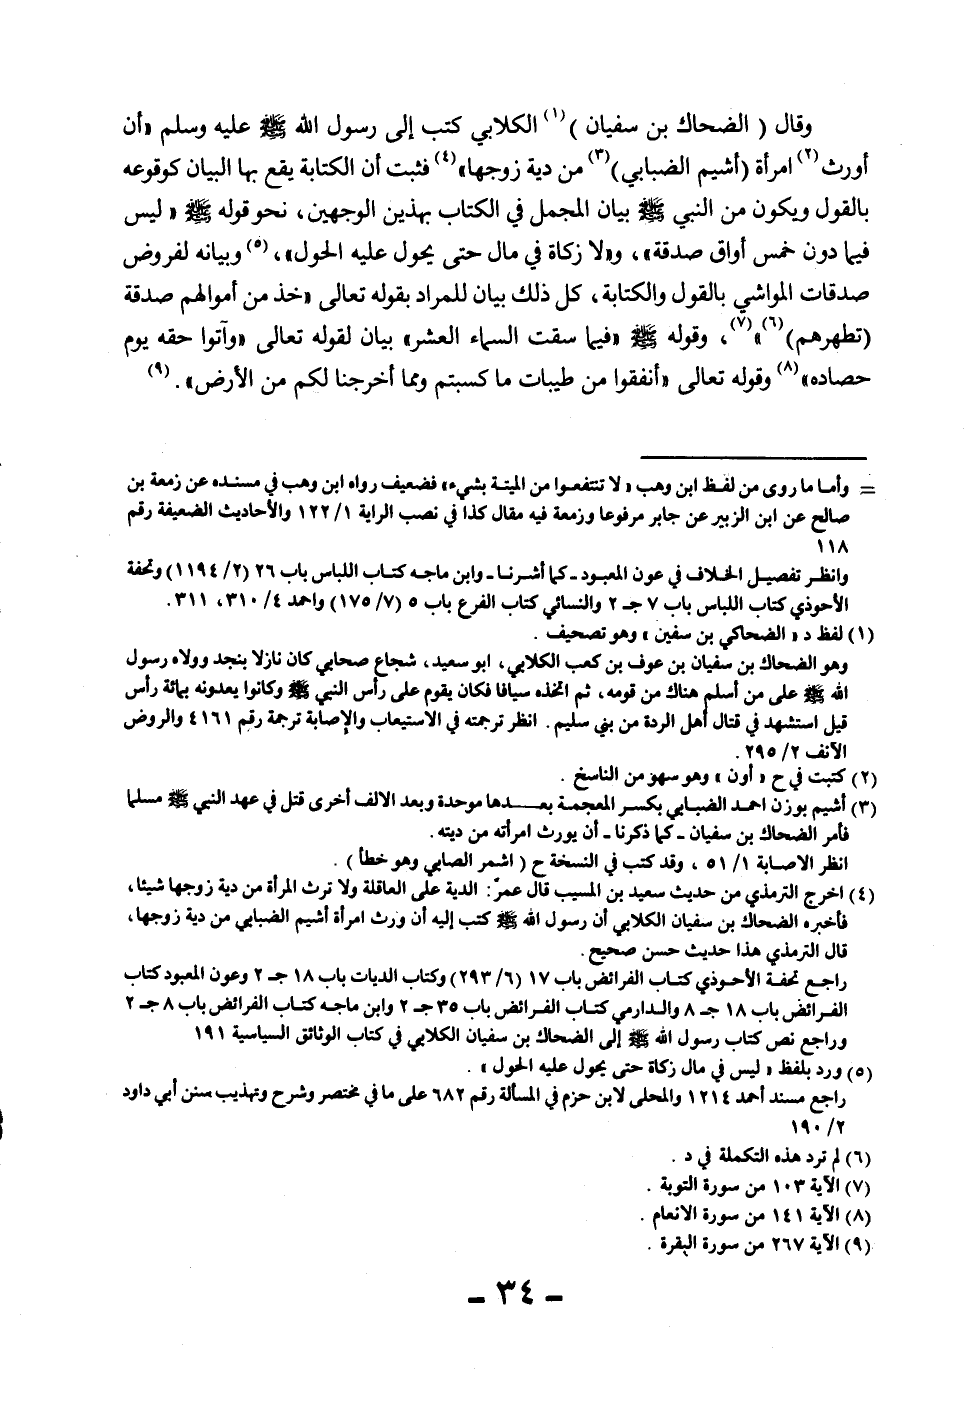 وقال ( الضحاك بن سفيان )(١) الكلابي كتب إلى رسول الله ﷺ عليه وسلم «أن
أورث(٢) امرأة (أشيم الضبابي)(٣) من دية زوجها»(٤) فثبت أن الكتابة يقع بها البيان كوقوعه
بالقول ويكون من النبي ﷺ بيان المجمل في الكتاب بهذين الوجهين، نحو قوله ﷺ « ليس
فيما دون خمس أواق صدقة»، و«لا زكاة في مال حتى يحول عليه الحول»،(٥) وبيانه لفروض
صدقات المواشي بالقول والكتابة، كل ذلك بيان للمراد بقوله تعالى «خذ من أموالهم صدقة
(تطهرهم)(٦)»(٧)، وقوله ﷺ «فيما سقت السماء العشر» بيان لقوله تعالى «وآتوا حقه يوم
حصاده»(٨) وقوله تعالى «أنفقوا من طيبات ما كسبتم ومما أخرجنا لكم من الأرض».(٩)
= وأما ما روى من لفظ ابن وهب « لا تنتفعوا من الميتة بشيء» فضعيف رواه ابن وهب في مسنده عن زمعة بن
صالح عن ابن الزبير عن جابر مرفوعا وزمعة فيه مقال كذا في نصب الراية ١/ ١٢٢ والأحاديث الضعيفة رقم
١١٨
وانظر تفصيل الخلاف في عون المعبود - كما أشرنا - وابن ماجه كتاب اللباس باب ٢٦ (٢/ ١١٩٤) وتحفة
الأحوذي كتاب اللباس باب ٧ جـ ٢ والنسائي كتاب الفرع باب ٥ (٧/ ١٧٥) واحمد ٤/ ٣١٠، ٣١١.
(١) لفظ د « الضحاكي بن سفين » وهو تصحيف .
وهو الضحاك بن سفيان بن عوف بن كعب الكلابي، ابو سعيد، شجاع صحابي كان نازلا بنجد وولاه رسول
الله ﷺ على من أسلم هناك من قومه، ثم اتخذه سيافا فكان يقوم على رأس النبي ﷺ وكانوا يعدونه بمائة رأس
قيل استشهد في قتال أهل الردة من بني سليم. انظر ترجمته في الاستيعاب والإصابة ترجمة رقم ٤١٦١ والروض
الآنف ٢/ ٢٩٥ .
(٢) كتبت في ح « أون » وهو سهو من الناسخ .
(٣) أشيم بوزن احمد الضبابي بكسر المعجمة بعدها موحدة وبعد الالف أخرى قتل في عهد النبي ﷺ مسلما
فأمر الضحاك بن سفيان - كما ذكرنا - أن يورث امرأته من ديته.
انظر الاصابة ١/ ٥١ ، وقد كتب في النسخة ح ( اشمر الصابي وهو خطأ ) .
(٤) اخرج الترمذي من حديث سعيد بن المسيب قال عمر: الدية على العاقلة ولا ترث المرأة من دية زوجها شيئا،
فأخبره الضحاك بن سفيان الكلابي أن رسول الله ﷺ كتب إليه أن ورث امرأة أشيم الضبابي من دية زوجها،
قال الترمذي هذا حديث حسن صحيح.
راجع تحفة الأحوذي كتاب الفرائض باب ١٧ (٦/ ٢٩٣) وكتاب الديات باب ١٨ جـ ٢ وعون المعبود كتاب
الفرائض باب ١٨ جـ ٨ والدارمي كتاب الفرائض باب ٣٥ جـ ٢ وابن ماجه كتاب الفرائض باب ٨ جـ ٢
وراجع نص كتاب رسول الله ﷺ إلى الضحاك بن سفيان الكلابي في كتاب الوثائق السياسية ١٩١
(٥) ورد بلفظ « ليس في مال زكاة حتى يحول عليه الحول » .
راجع مسند أحمد ١٢١٤ والمحلى لابن حزم في المسألة رقم ٦٨٢ على ما في مختصر وشرح وتهذيب سنن أبي داود
٢/ ١٩٠
(٦) لم ترد هذه التكملة في د .
(٧) الآية ١٠٣ من سورة التوبة .
(٨) الآية ١٤١ من سورة الانعام .
(٩) الآية ٢٦٧ من سورة البقرة .
- ٣٤ -